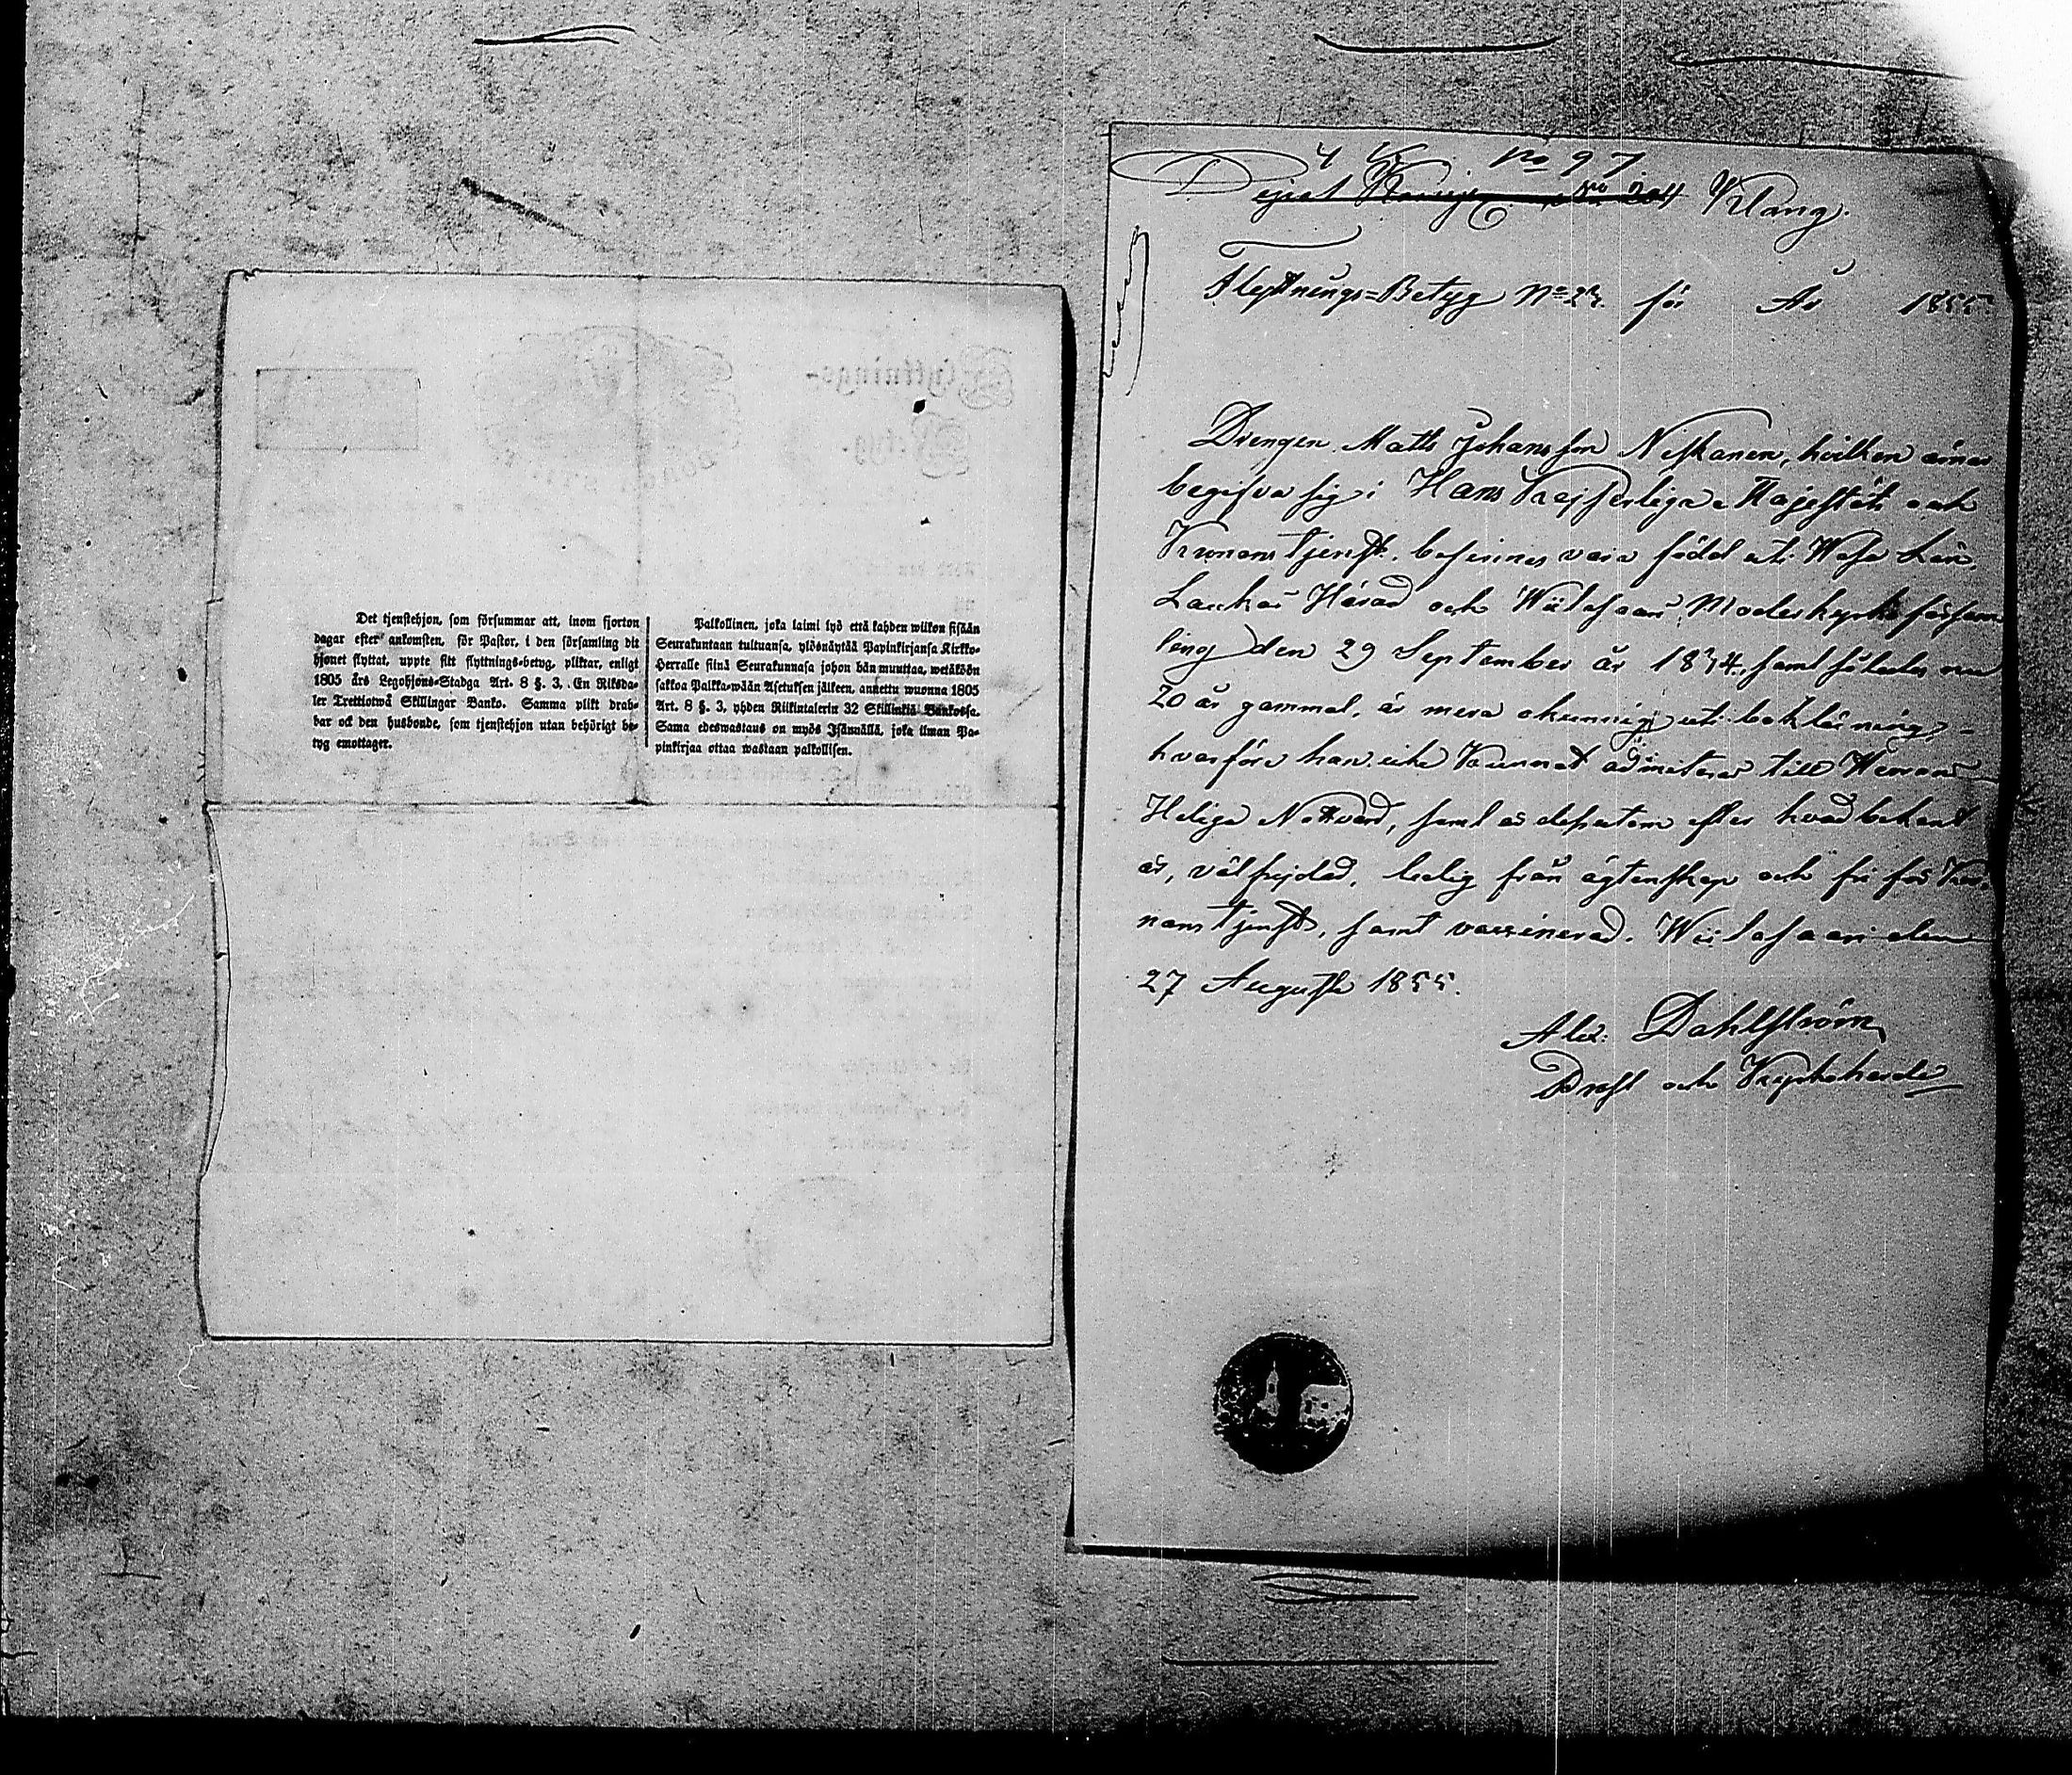 Det tjenstehjon, som försummar att, inom fjorton
dagar efter ankomsten, för Pastor, i den församling dit
hjonet flyttat, uppte sitt flyttnings-betyg, pliktar, enligt
1805 års Legohjons-Stadga Art. 8 §. 3. En Riksda-
ler Trettiotwå Skillingar Banko. Samma plikt drab-
bar ock den husbonde, som tjenstehjon utan behörigt be-
tyg emottager.
Palkollinen, joka laimi lyö että kahden wiikon sisään
Seurakuntaan tultuansa, ylösnäytää Papinkirjansa Kirkko-
Herralle siinä Seurakunnasa johon hän muuttaa, wetäköön
sakkoa Palkka-wään Asetuksen jälkeen, annettu wuonna 1805
Art. 8 §. 3, yhden Riikintalerin 32 Skillinkiä Bankossa.
Sama edeswastaus on myös Isännällä, joka ilman Pa-
pinkirjaa ottaa wastaan palkollisen.
Flyttnings-
Betyg.
4 No 97
Klang.
Flyttnings=Betyg No 23. för År 1855.
Drengen Matts Johansson Niskanen, hvilken ämar
begifva sig i Hans Kejserliga Majestäts och
Kronans tjenst, befinnes vara född uti Wasa Län
Laukas Härad och Wiitasaari Moderkyrko försam
ling den 29 September år 1834, samt således nu
20 år gammal, är mera okunnig uti boklärning,
hvarföre han icke kunnat admitteras till Herrans
Heliga Nattvard, samt är dessutom efter hvad bekant
är, välfrejdad, ledig från ägtenskap och fri för Kro-
nans tjenst, samt vaccinerad. Wiitasaari den
27 Augusti 1855.
Alex: Dahlström
Prost och Kyrkoherde